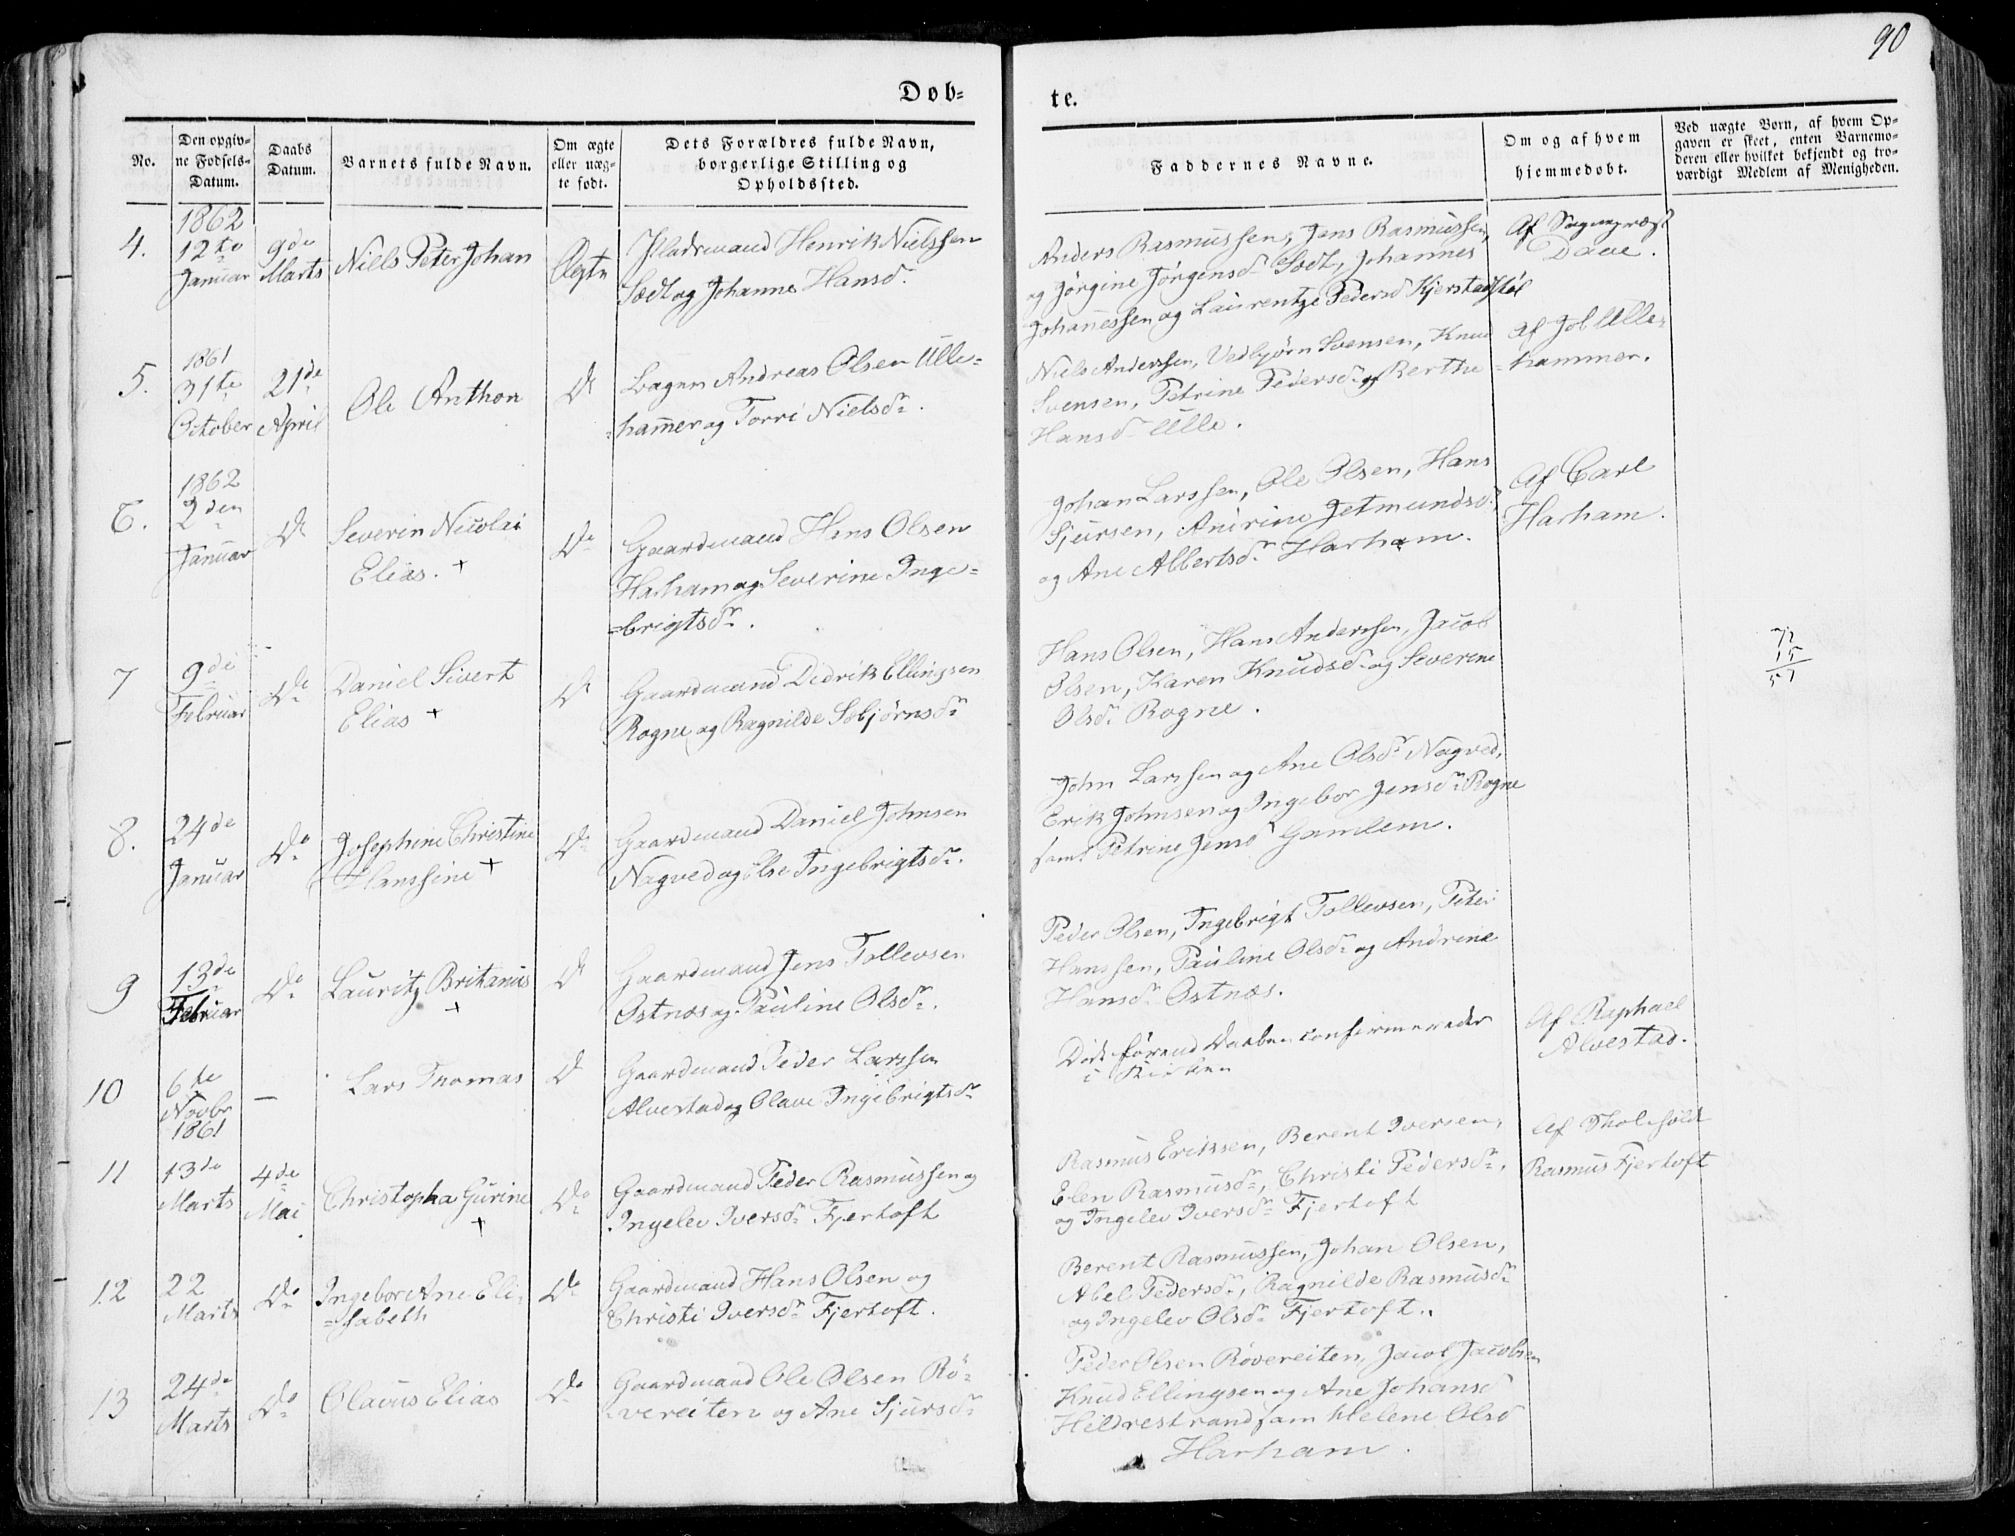 90
Døb-
te.
No.
Den opgiv-
ne Fødsels-
Datum.
Daabs
Datum.
Barnets fulde Navn.
Om ægte
eller uæg-
te født.
Dets Forældres fulde Navn,
borgerlige Stilling og
Opholdssted.
Faddernes Navne.
Om og af hvem
hjemmedøbt.
Ved uægte Børn, af hvem Op-
gaven er skeet, enten Barnemo-
deren eller hvilket bekjendt og tro-
værdigt Medlem af Menigheden.
4.
1862
12te
Januar
9de
Marts
Niels Peter Johan
Ægte
Pladsmand Henrik Nielssen
og Johanne Hansdr.
Anders Rasmussen, Jens Rasmussen,
og Jørgine Jørgensdr Johannes
Johannessen og Laurentze Pedersd
Af Sognepræst
Daae.
5.
1861
31te
October
21de
April
Ole Anthon
Do
Andreas Olsen Ulle-
=hamer og Torri Nielsdr.
Niels Anderssen, Vedbjørn Svensen, Knud
Svensen, Petrine Pedersdr og Berthe
Hansdr Ulla.
Af Job Ulle-
=hammer.
6.
1862
2den
Januar
Do
Severin Nicolai
Elias. +
Do
Gaardmand Hans Olsen
Harham og Severine Inge-
=brigtsdr.
Johan Larssen, Ole Olsen, Hans
Sjursen, Anirine Jetmundsdr
og Ane Albertsdr Harham.
Af Carl
Harham.
7
9de
Februar
Do
Daniel Sivert
Elias +
Do
Gaardmand Didrik Ellingsen
Rogne og Ragnilde Sebjørnsdr
Hans Olsen, Hans Anderssen, Jacob
Olsen, Karen Knudsdr og Severine
Olsdr Rogne.
72
15
57
8.
24de
Januar
Do
Josephine Christine
Hanssine +
Do
Gaardmand Daniel Johnsen
Nogved og Else Ingebrigtsdr.
John Larssen og Ane Olsdr Nogved,
Erik Johnsen og Ingebor Jensdr Rogne
samt Petrine Jensd Gamlem.
9
13de
Februar
Do
Lauritz Britanius
+
Do
Gaardmand Jens Tollevsen
Ostnæs og Pauline Olsdr.
Peder Olsen, Ingebrigt Tollevsen, Peter
Hanssen, Pauline Olsdr og Andrine
Hansdr Ostnæs.
10
6te
Novbr
1861
—
Lars Thomas
Do
Gaardmand Peder Larssen
Alvestad og Olave Ingebrigtsdr
Død førend Daaben
i Kirken
Af Raphael
Alvestad.
11
13de
Marts
4de
Mai
Christopha Gurine
+
Do
Gaardmand Peder Rasmussen og
Ingelev Iversdr Fjertoft
Rasmus Eriksen, Berent Iversen,
Elen Rasmusdr, Christi Pedersdr,
og Ingelev Iversdr Fjertoft
Af Skoleholdr
Rasmus Fjertoft
12
22
Marts
Do
Ingebor Ane Eli-
=sabeth
Do
Gaardmand Hans Olsen og
Christi Iversdr Fjertoft.
Berent Rasmussen, Johan Olsen,
Abel Pedersdr, Ragnilde Rasmusdr
og Ingelev Olsdr Fjertoft.
13
24de
Marts
Do
Olavus Elias
Do
Gaardmand Ole Olsen Rö-
vereiten og Ane Sjursdr
Peder Olsen Rövereiten, Jacob Jacobsen
Knud Ellingsen og Ane Johansd
Hildrestrand sam Helene Olsd
Harham.